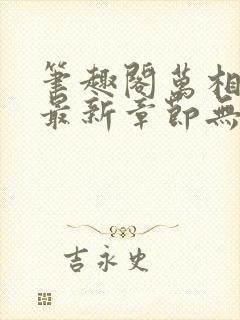 筆趣閣萬相
最新章節無
吉永史